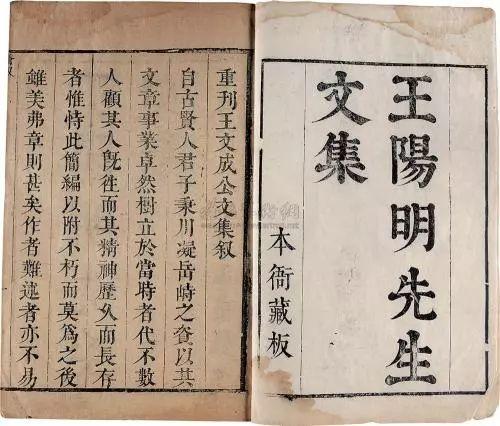 王陽明先生
文集
本衙藏板
重刊王文成公文集叙
自古賢人君子秉川凝岳峙之資以其
文章事業卓然樹立於當時者代不數
人顧其人旣徃而其精神歷久而長存
者惟恃此簡編以附不朽而莫爲之後
雖美弗章則甚矣作者難述者亦不易